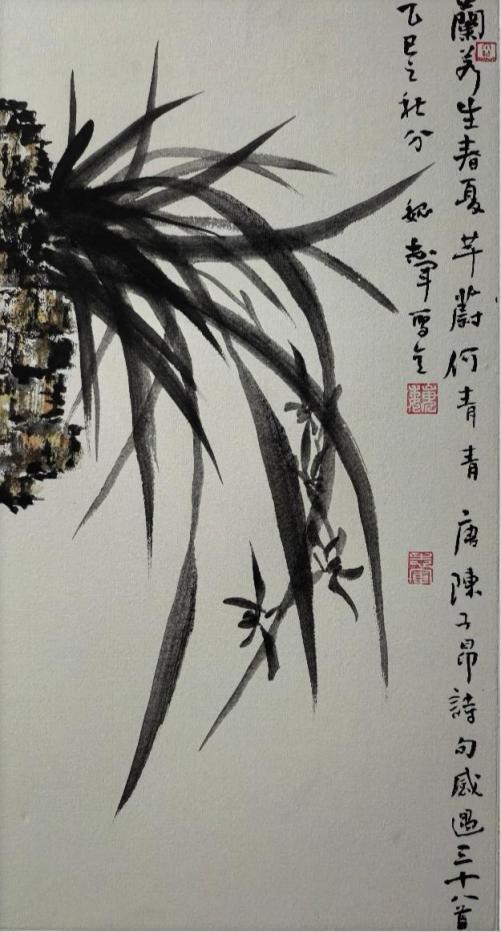 蘭若生春夏芊蔚何青青 唐陳子昂詩句感遇三十八首
乙巳之秋分 魏